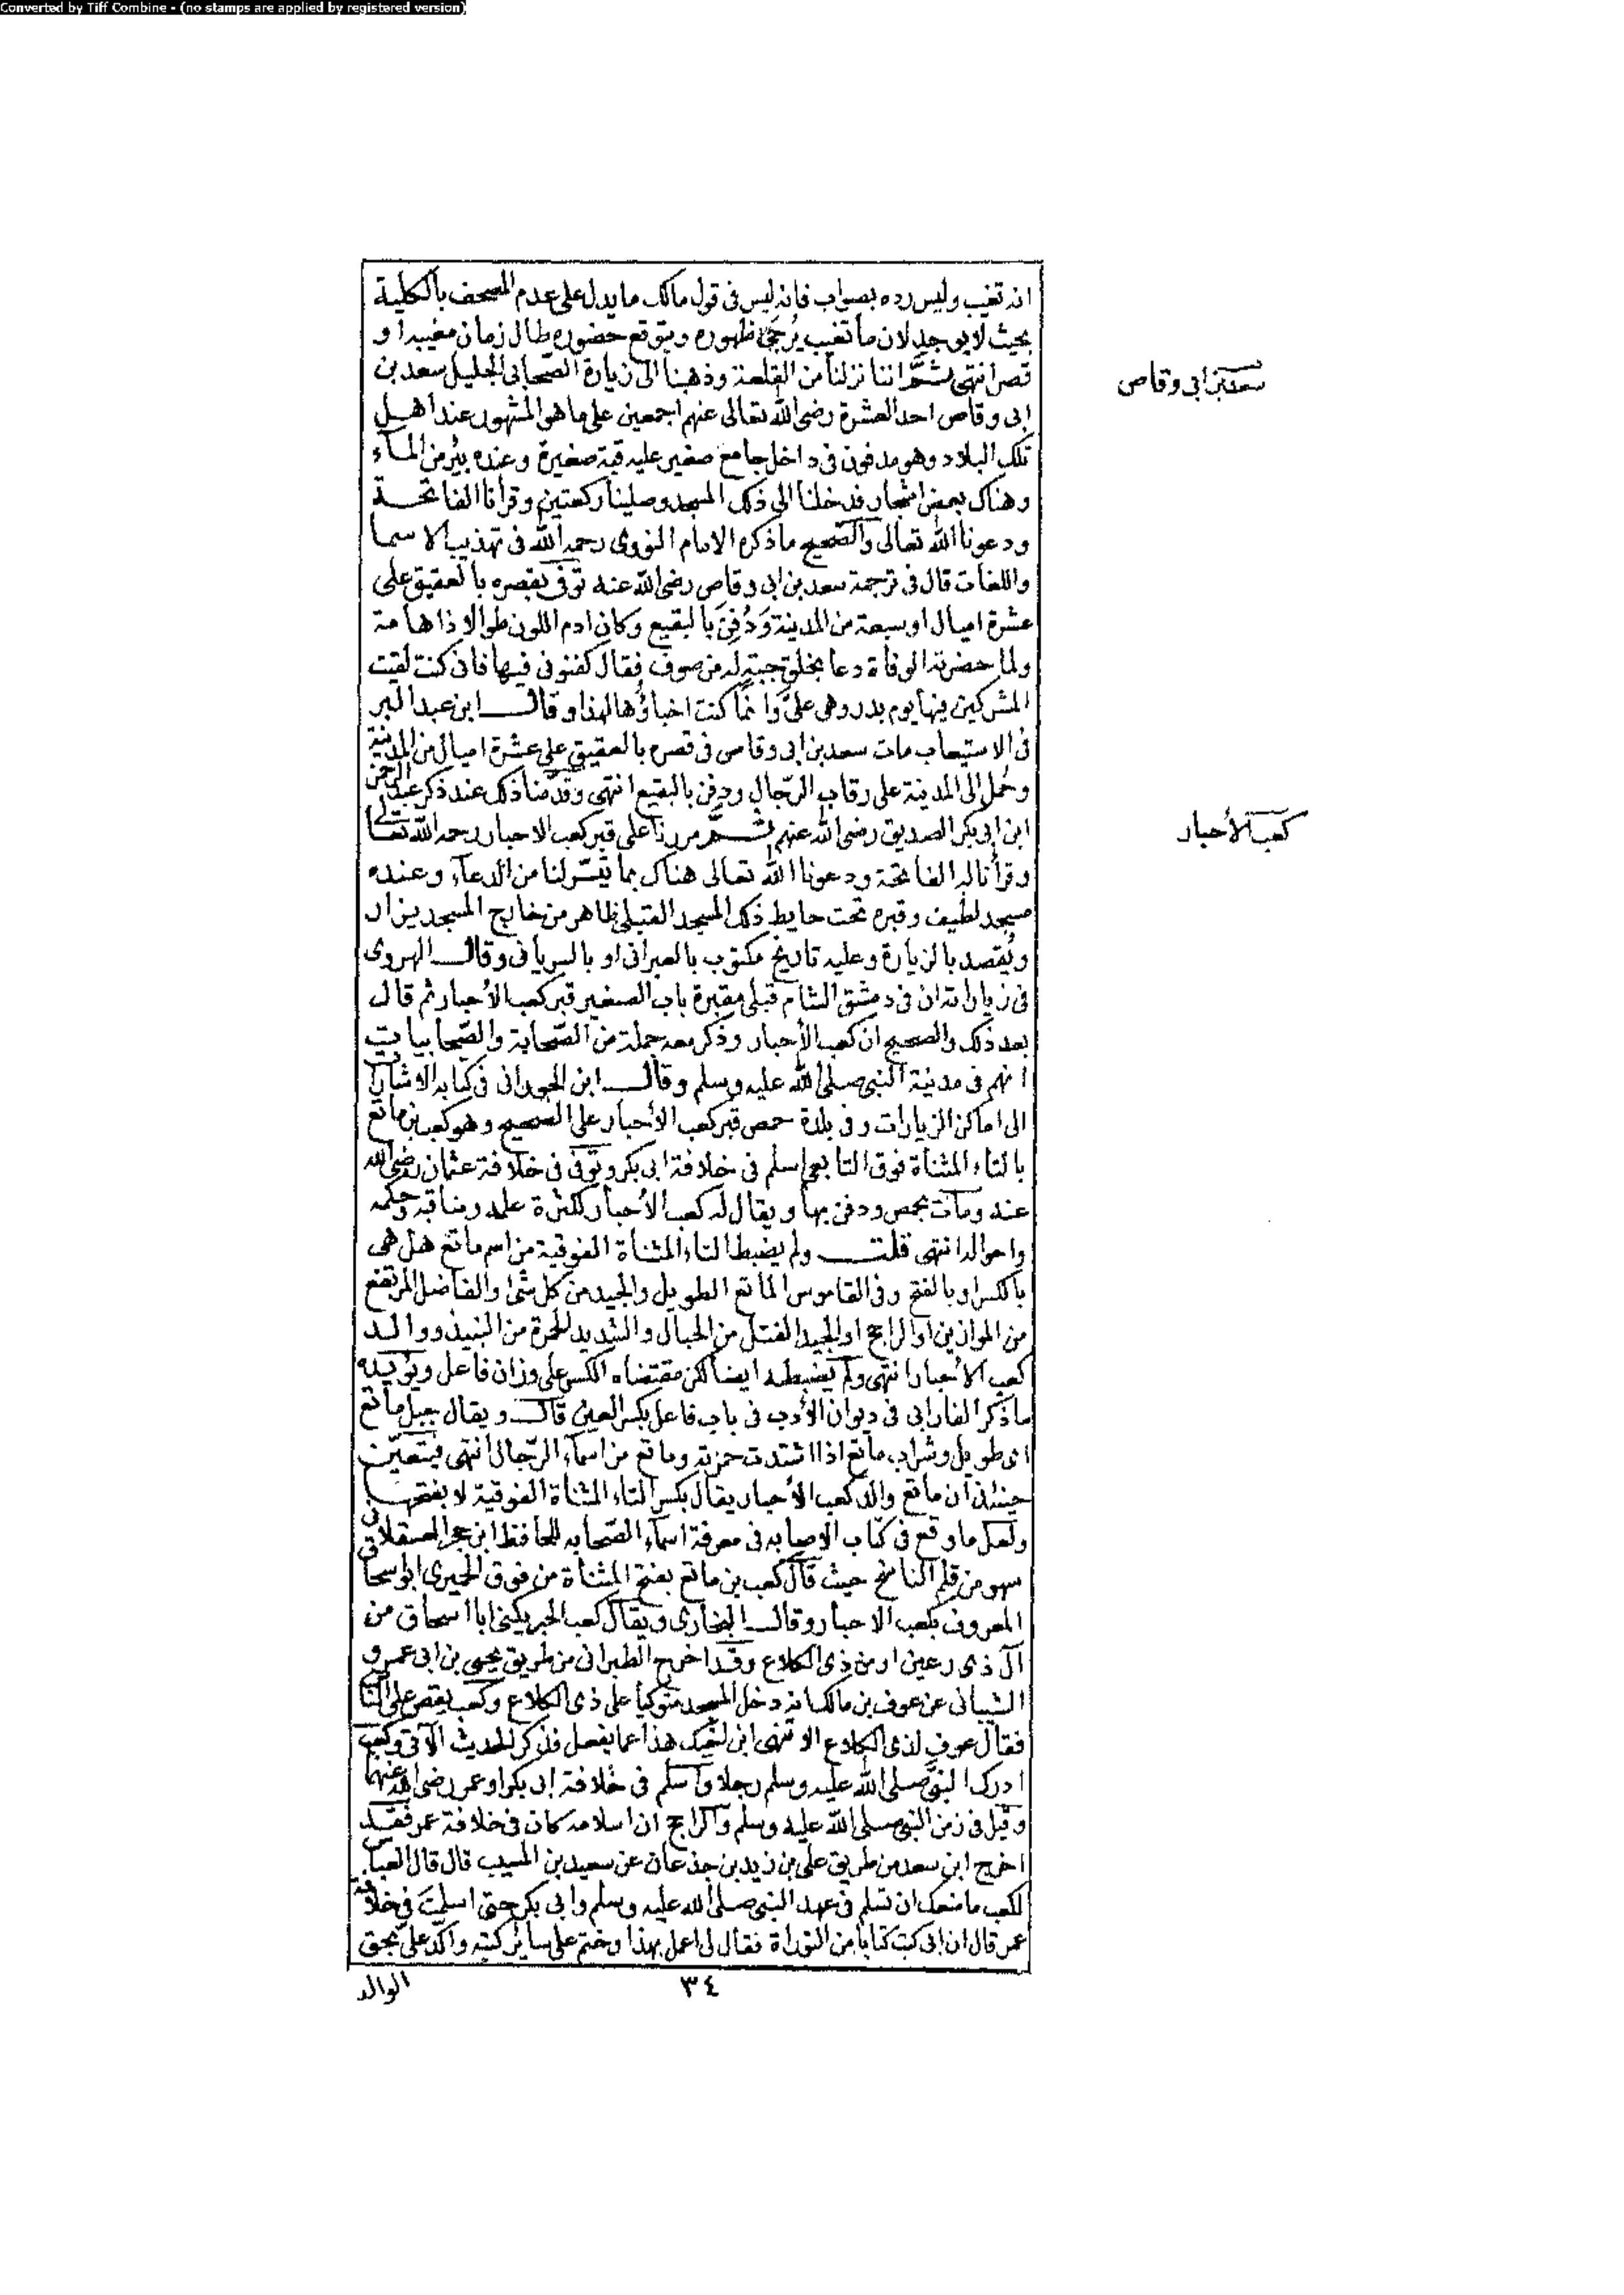 Converted by Tiff Combine - (no stamps are applied by registered version)
انه تغيب وليس رده بصواب فانه ليس فى قول مالك ما يدل على عدم المصحف بالكلية
بحيث لا يوجد لان ما تغيب يُرجَى ظهوره ويتوقع حضوره طال زمان مغيبه او
قصر انتهى ثمَّ اننا نزلنا من القلعة وذهبنا الى زيارة الصّحابى الجليل سعد بن
ابى وقاص احد العشرة رضى الله تعالى عنهم اجمعين على ما هو المشهور عند اهل
تلك البلاد وهو مدفون فى داخل جامع صغير عليه قبة صغيرة وعنده بئر من الماء
وهناك بعض اشجار فدخلنا الى ذلك المسجد وصلينا ركعتين وقرأنا الفاتحة
ودعونا الله تعالى والصّحيح ما ذكره الامام النووى رحمه الله فى تهذيب الاسما
واللغات قال فى ترجمة سعد بن ابى وقاص رضى الله عنه توفى بقصره بالعقيق على
عشرة اميال او سبعة من المدينة وَدُفِنَ بالبقيع وكان ادم اللون طوالا ذا هامة
ولما حضرته الوفاة دعا بخلق جبة له من صوف فقال كفنونى فيها فانى كنت لقيت
المشركين فيها يوم بدر وهى علىَّ وانما كنت اخباؤها لهذا وقال ابن عبد البر
فى الاستيعاب مات سعد بن ابى وقاص فى قصره بالعقيق على عشرة اميال من المدينة
وحُمل الى المدينة على رقاب الرّجال ودفن بالبقيع انتهى وقدّمنا ذلك عند ذكر عبد الرحمن
ابن ابى بكر الصديق رضى الله عنهم ثمَّ مررنا على قبر كعب الاحبار رحمه الله تعالى
وقرأنا له الفاتحة ودعونا الله تعالى هناك بما تيسّر لنا من الدعآء وعنده
مسجد لطيف وقبره تحت حايط ذلك المسجد القبلى ظاهر من خارج المسجد يزار
ويُقصد بالزيارة وعليه تاريخ مكتوب بالعبرانى او بالسريانى وقال الهروى
فى زياراته ان فى دمشق الشام قبلى مقبرة باب الصغير قبر كعب الأحبار ثم قال
بعد ذلك والصحيح ان كعب الأحبار وذكر معه جملة من الصّحابة والصّحابيات
انهم فى مدينة النبى صلى الله عليه وسلم وقال ابن الحورانى فى كتابه الاشارات
الى اماكن الزيارات وفى بلدة حمص قبر كعب الأحبار على الصحيح وهو كعب بن ماتع
بالتاء المثناة فوق التابعى اسلم فى خلافة ابى بكر وتوفى فى خلافة عثمان رضى الله
عنه ومات بحمص ودفن بها ويقال له كعب الأحبار لكثرة علمه ومناقبه وحكمه
واحواله انتهى قلت ولم يضبط التاء المثناة الفوقية من اسم ماتع هل هى
بالكسر او بالفتح وفى القاموس الماتع الطويل والجيد من كل شئ والفاضل المرتفع
من الموازين او الراجح او الجيد الفتل من الحبال والشديد الحمرة من النبيذ ووالد
كعب الأحبار انتهى ولم يضبطه ايضا لكن مقتضاه الكسر على وزان فاعل ويؤيده
ما ذكر الفارابى فى ديوان الأدب فى باب فاعل بكسر العين قال ويقال جبل ماتع
اى طويل وشراب ماتع اذا اشتدت حمرته وماتع من اسماء الرّجال انتهى فيتعيّن
حينئذ ان ماتع والد كعب الأحبار يقال بكسر التاء المثناة الفوقية لا بفتحها
ولعل ما وقع فى كتاب الاصابه فى معرفة اسماء الصّحابه للحافظ ابن حجر العسقلانى
سهو من قلم الناسخ حيث قال كعب بن ماتع بفتح المثناة من فوق الحميرى ابو اسحاق
المعروف بكعب الاحبار وقال البخارى ويقال كعب الحبر يكنى ابا اسحاق من
آل ذى رعين او من ذى الكلاع وقد اخرج الطبرانى من طريق يحيى بن ابى عمرو
الشيبانى عن عوف بن مالك انه دخل المسجد متوكيا على ذى الكلاع وكعب يقص على النا
فقال عوف لذى الكلاع الا تنهى ابن اخيك هذا عما يفعل فذكر الحديث الآتى وكعب
ادرك النبىَّ صلى الله عليه وسلم رجلا واسلم فى خلافة ابى بكر او عمر رضى الله عنهما
وقيل فى زمن النبى صلى الله عليه وسلم والراجح ان اسلامه كان فى خلافة عمر فقد
اخرج ابن سعد من طريق على بن زيد بن جدعان عن سعيد بن المسيب قال قال العباس
لكعب ما منعك ان تسلم فى عهد النبى صلى الله عليه وسلم وابى بكر حتى اسلمت فى خلافة
عمر قال ان ابى كتب كتابا من التوراة فقال لى اعمل بهذا وختم على ساير كتبه واكّد علىّ بحق
الوالد
٣٤
سعد بن ابى وقاص
كعب الأحبار